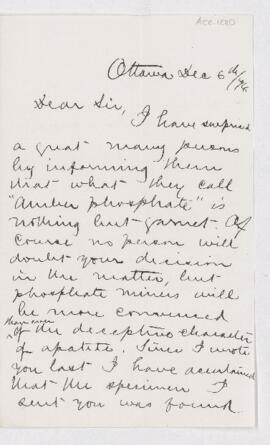 Ottawa Dec 6th/76
Dear Sir,
I have surprised
a great many persons
by informing them
that what they call
"Amber phosphate" is
nothing but garnet. Of
course no person will
doubt your decision
in the matter, but
phosphate miners will
be more convinced
than ever
of the deceptive character
of apatite. Since I wrote
you last I have ascertained
that the specimen I
sent you was found